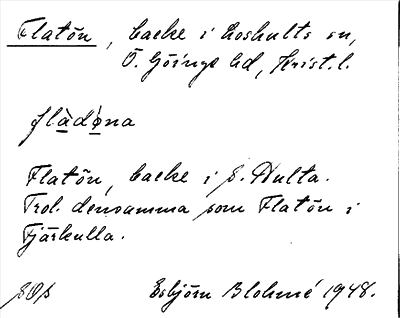 Flatön, backe i Loshults sn,
Ö. Göinge hd, Krist. l.
flàdøna
Flatön, backe i S. Hulta.
Trol. densamma som Flatön i
Fjärkulla.
Esbjörn Blohmé 1948.